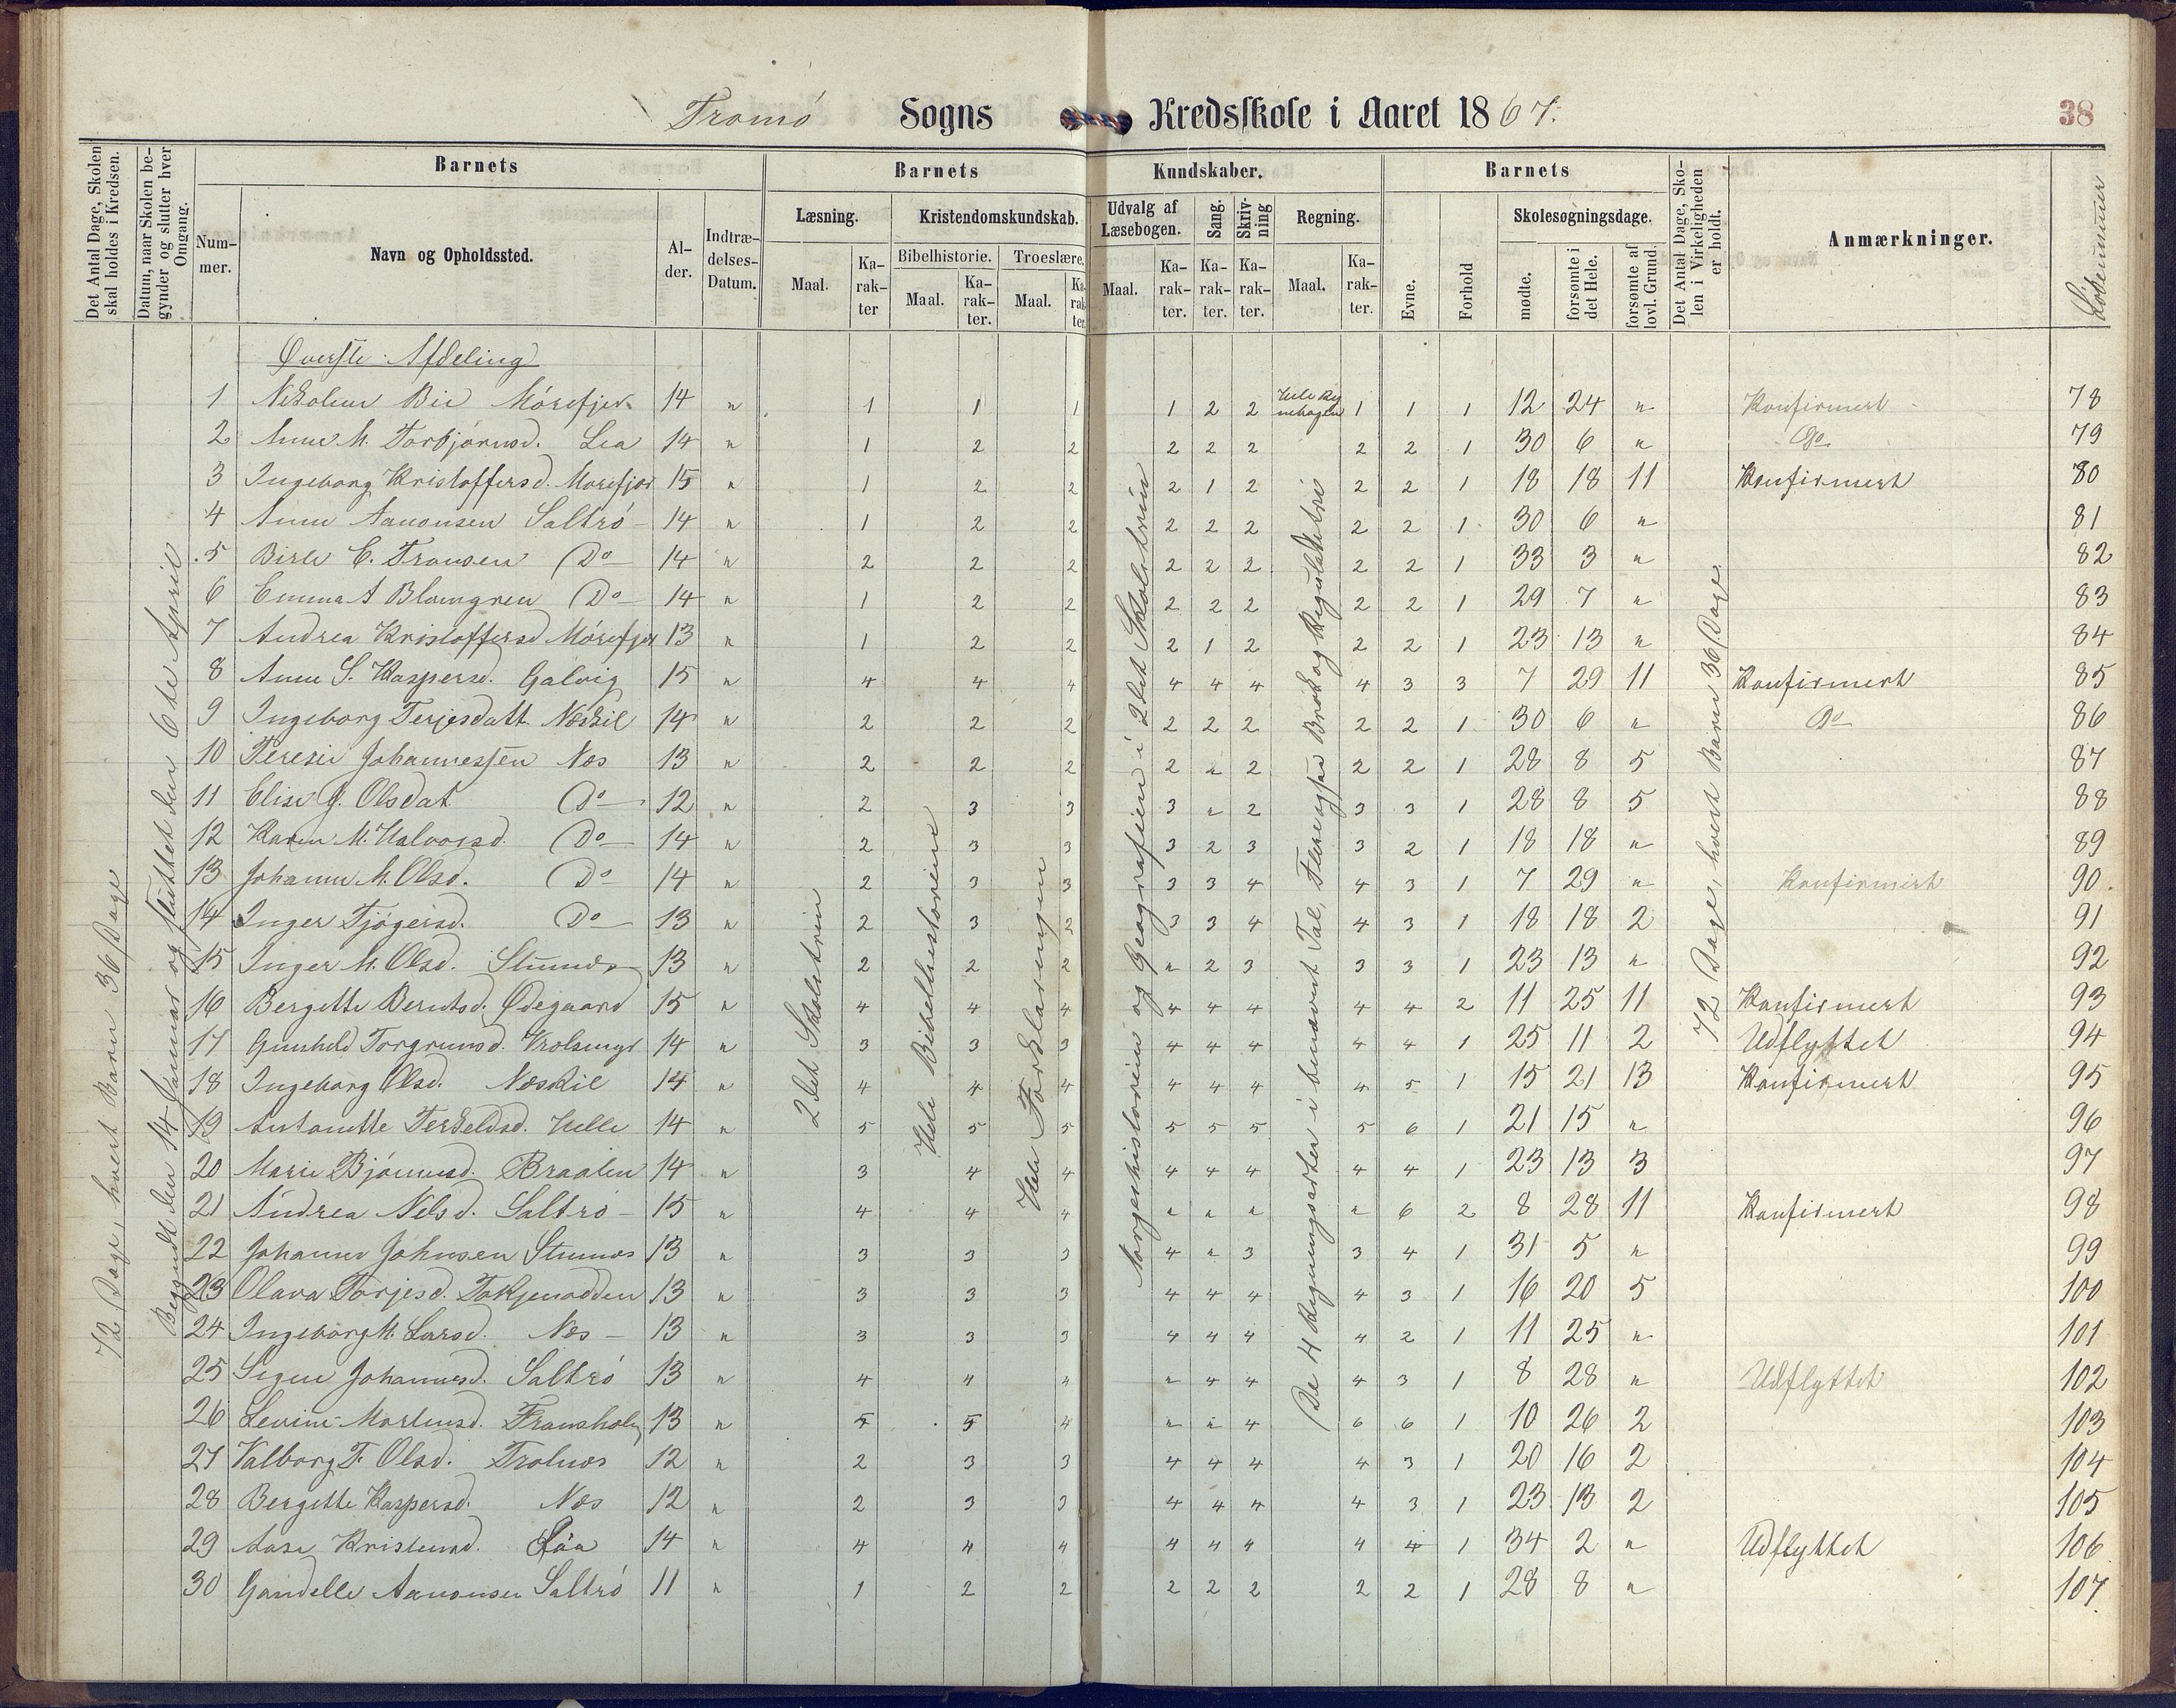 Tromö Sogns Kredsskole i Aaret 1867.
38
Det Antal Dage, Skolen skal holdes i Kredsen.
Datum, naar Skolen begynder og slutter hver Omgang.
Barnets
Nummer.
Navn og Opholdssted.
Alder.
Indtrædelses-Datum.
Barnets Kundskaber.
Læsning.
Maal.
Karakter
Kristendomskundskab.
Bibelhistorie.
Maal.
Karakter.
Troeslære.
Maal.
Karakter.
Udvalg af Læsebogen.
Maal.
Karakter.
Sang.
Karakter.
Skrivning
Karakter.
Regning.
Maal.
Karakter.
Barnets
Evne.
Forhold
Skolesøgningsdage.
mødte.
forsømte i det Hele.
forsømte af lovl. Grund.
Det Antal Dage, Skolen i Virkeligheden er holdt.
Anmærkninger.
Löbenumer
72 Dage, hvert Barn 36 Dage
Begyndt den 14 Januar og sluttet den 6te April
2det Skoletrin
Hele Bibelhistorien
Hele Forklaringen
Norgeshistorien og Geografien i 2det Skoletrin
De 4 Regningsarter i benævnt Tal, Brök og Reguladetri
72 Dage, hvert Barn 36 Dage
Øverste Afdeling
1 Nikoline Bie Mörefjer 14 " 1 1 1 1 2 2 Hele Regnebogen 1 1 1 12 24 " Konfirmert 78
2 Anne M. Torbjörnsd. Lia 14 " 1 2 2 2 2 2 2 2 1 30 6 " Do 79
3 Ingeborg Kristoffersd. Morefjer 15 " 1 2 2 2 1 2 2 2 1 18 18 11 Konfirmert 80
4 Anne Aanonsen Saltrö 14 " 1 2 2 2 2 2 2 2 1 30 6 " 81
5 C. Do 14 " 2 2 2 2 2 2 2 2 1 33 3 " 82
6 Emma A Blomgren Do 14 " 1 2 2 2 2 2 2 2 1 29 7 " 83
7 Andrea Kristoffersd Mörefjer 13 " 1 2 2 2 1 2 2 2 1 23 13 " 84
8 Anne S. Kaspersd. Galvig 15 " 4 4 4 4 4 4 4 3 3 7 29 11 Konfirmert 85
9 Ingeborg Terjesdatt. Næskil 14 " 2 2 2 2 2 2 2 2 1 30 6 " Do 86
10 Teresie Johannessen Næs 13 " 2 2 2 2 " 2 2 2 1 28 8 5 87
11 Elise J. Olsdat Do 12 " 2 3 3 3 " 2 3 3 1 28 8 5 88
12 Karen M. Halvorsd. Do 14 " 2 3 3 3 2 3 3 2 1 18 18 " 89
13 Johanne M. Olsd. Do 14 " 2 3 3 3 3 4 4 3 1 7 29 " Konfirmert 90.
14 Inger Tjögersd. Do 13 " 2 3 2 3 3 4 4 3 1 18 18 2 91
15 Inger M. Olsd. Stumæs 13 " 2 2 2 " 2 3 3 3 1 23 13 " 92
16 Bergette Berntsd. Ødegaard 15 " 4 4 4 4 4 4 4 4 2 11 25 11 Konfirmert 93
17 Gunhild Torgrimsd. 14 " 3 3 3 4 4 4 4 4 1 25 11 2 Udflyttet 94
18 Ingeborg Olsd. Næskil 14 " 4 4 4 4 4 4 4 5 1 15 21 13 Konfirmert 95
19 Antonette Terkeldsd. Helle 14 " 5 5 5 5 5 5 5 6 1 21 15 " 96
20 Marie Bjönnesd. Braaten 14 " 3 4 4 4 4 4 4 4 1 23 13 3 97
21 Andrea Nilsd. Saltrö 15 " 4 4 4 " " " " 6 2 8 28 11 Konfirmert 98
22 Johanne Johnsen Stumæs 13 " 3 3 3 4 " 3 3 4 1 31 5 " 99
23 Olava Torjesd. Torkjenodden 13 " 3 3 3 4 4 4 4 3 1 16 20 5 100
24 Ingeborg M. Larsd. Næs 13 " 3 3 3 4 4 4 4 2 1 11 25 " 101
25 Signe Johannesd. Saltrö 13 " 4 4 " " 4 4 4 3 1 8 28 " Udflyttet 102
26 Levine Mortensd. Fransholm 13 " 5 5 4 " " 4 6 6 1 10 26 2 103
27 Valborg T. Olsd. Trolnæs 12 " 2 3 3 4 4 4 4 3 1 20 16 2 104
28 Bergette Kaspersd. Næs 12 " 2 3 3 4 4 4 4 3 1 23 13 2 105
29 Aase Kristensd. 14 " 4 4 4 4 4 4 4 4 1 34 2 " Udflyttet 106
30 Gandelle Aanonsen Saltrö 11 " 1 2 2 2 2 2 2 2 1 28 8 " 107